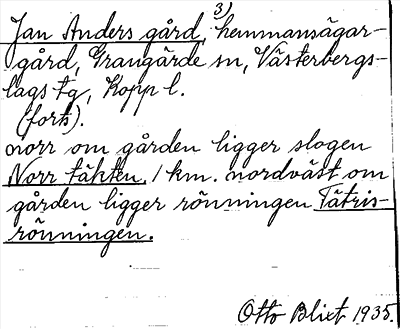 Jan Anders gård, 3) hemmansägar-
gård, Grangärde sn, Västerbergs-
lags tg, Kopp l.
(forts).
norr om gården ligger slogen
Norr täkten. 1 km. nordväst om
gården ligger rönningen Tätris-
rönningen.
Otto Blixt 1935.